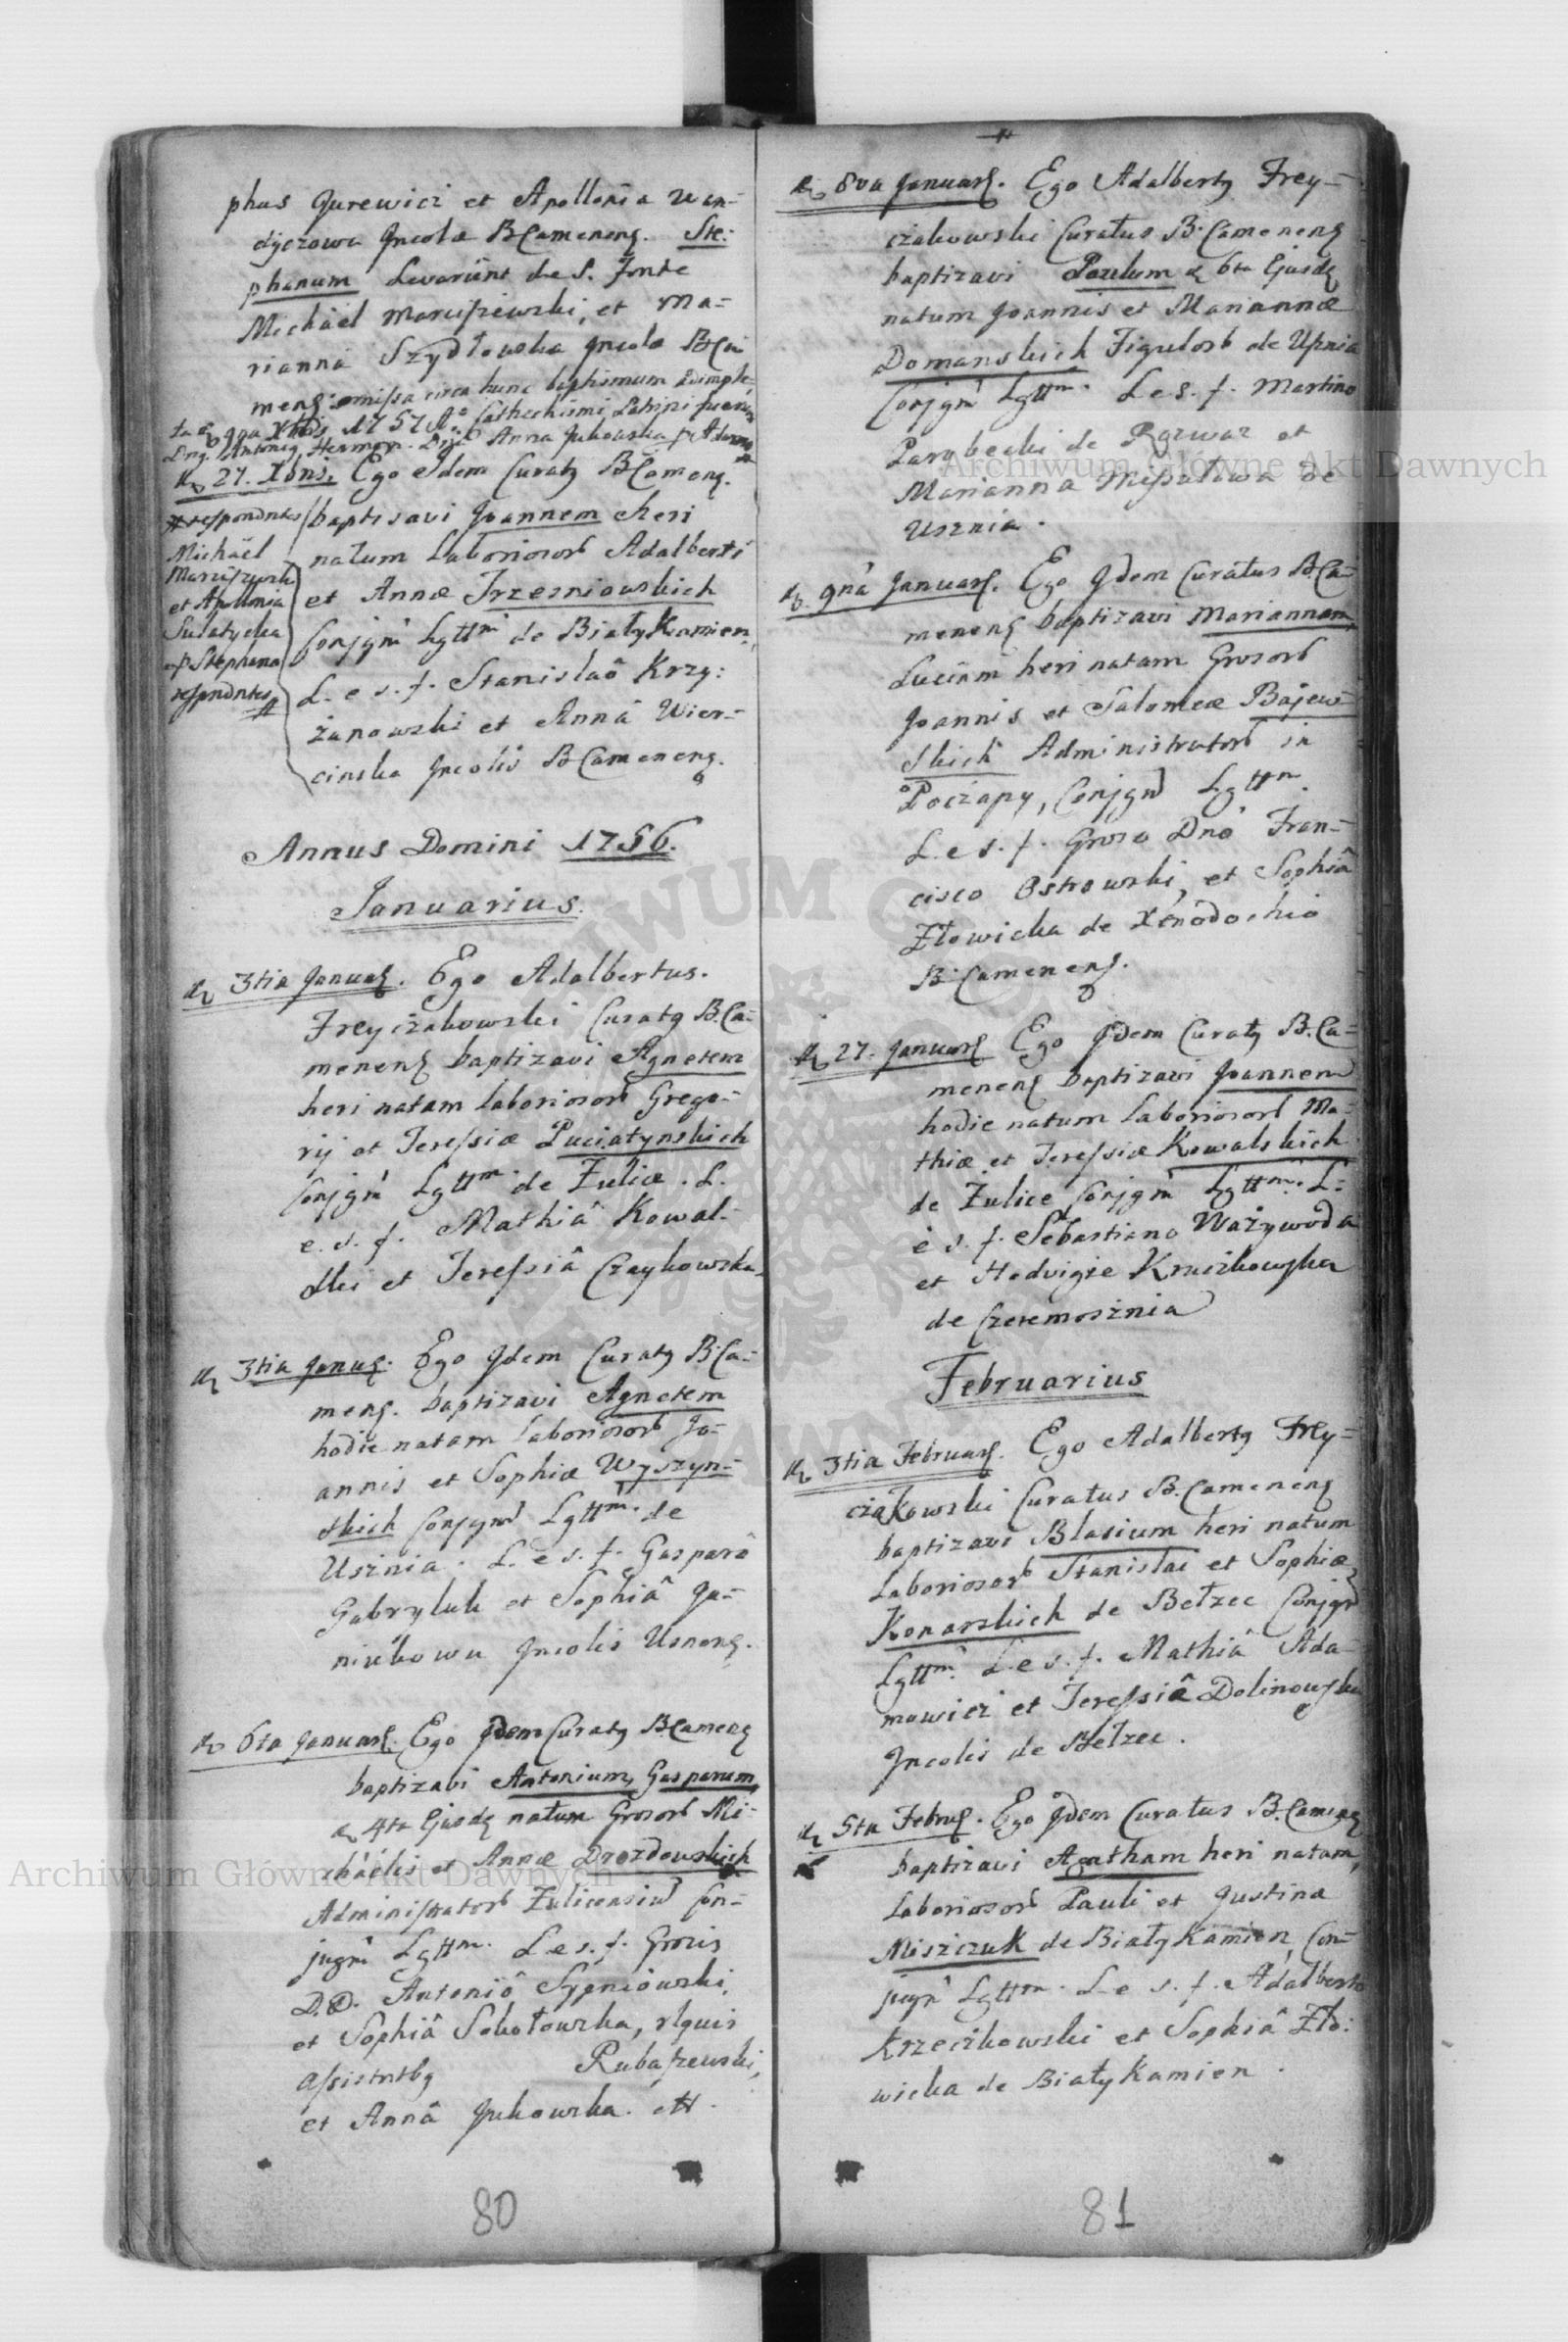 phus Jurewicz et Apollonia Wan-
dyczowa Jncolæ BCamenens. Ste:
phanum Levarunt de S. Fonte
Michäel Maruszewski, et Ma-
rianna Szydłowska Jncolæ BCa
mens: omissa circa hunc baptismum
1757 Cathechismi Patrini fuerunt
Antonig Herman. Anna Jukowska
27. Xbris. Ego Jdem Curatg BCamens.
baptisavi Joannem heri
natum Laboriosorb Adalberti
et Annæ Trzesniowskich
Conjgm Lgttm de BiałyKamien,
L. e s. f. Stanislaô Krzy:
żanowski et Annâ Wier-
cinska Jncolis BCamenens.
respondntes
Michäel
Maruszewski
et Apollonia
Sulatycka
Stephana
respondntes
Annus Domini 1756.
Januarius.
3tia Januar. Ego Adalbertus.
Freyczakowski Curatg B.Ca-
menens baptizavi Agnetem
heri natam laboriosorb Grego-
rij et Teressiæ Puciatynskich
Conjgm Lgttm de Zulice. L.
e. s. f. Mathiâ Kowal-
ski et Teressiâ Czaykowska.
3tia Januar. Ego Jdem Curatg B.Ca-
mens. baptizavi Agnetem
hodie natam laboriosorb Jo-
annis et Sophiæ Wyszyn-
skich Conjgm Lgttm. de
Usznia. L. e s. f. Gasparô
Gabryluk et Sophiâ Ja-
nickowa Jncolis Usnens.
6ta Januar. Ego Jdem Curatg B.Camens
baptizavi Antonium, Gasparum,
4ta Ejusdem natum Grosorb Mi-
chäelis et Annæ Drozdowskich
Administratorb Zulicensium Con-
jugm Lgttm. L e s. f. Grosis
D.D. Antoniô Sygniowski,
et Sophiâ Sokołowska,
assistntbg Rubaszewski,
et Annâ Jukowska.
80
8va Januar. Ego Adalbertg Frey-
czakowski Curatus B.Camenens
baptizavi Paulum 6ta Ejusdem
natum Joannis et Mariannæ
Domanskich Figulorb de Usznia
Conjgm Lgttm. L e s. f. Martino
Parybecki de Rozwaz et
Marianna de
Usznia.
9na Januar. Ego Jdem Curatus B.Ca-
menens baptizavi Mariannam,
Luciam heri natam Grosorb
Joannis et Salomeæ Bajew-
skich Administratorb in
Poczapy, Conjgm Lgttm.
L. e s. f. Groso Dno Fran-
cisco Ostrowski, et Sophiâ
Złowicka de Xenodochio
B.Camenens.
27. Januar. Ego Jdem Curatg B.Ca-
menens baptizavi Joannem
hodie natum Laboriosorb Ma-
thiæ et Teressiæ Kowalskich
de Zulice Conjgm Lgttm. L.
e s. f. Sebastiano Ważywoda
et Hedvigie Kruczkowska
de Czeremosznia
Februarius
3tia Februar. Ego Adalbertg Frey-
czakowski Curatus B.Camenens
baptizavi Blasium heri natum
Laboriosorb Stanislai et Sophiæ
Konarskich de Bełzec Conjgm
Lgttm. L e s. f. Mathiâ Ada-
mowicz et Teressiâ Dolinowska
Jncolis de Bełzec.
5ta Februar. Ego Jdem Curatus B.Camens
baptizavi Agatham heri natam,
Laboriosorb Pauli et Justina
Miszczuk de BiałyKamien, Con-
jugm Lgttm. L e s. f. Adalberto
Krzeczkowski et Sophiâ Zło:
wicka de BiałyKamien.
81
Archiwum Główne Akt Dawnych
Archiwum Główne Akt Dawnych